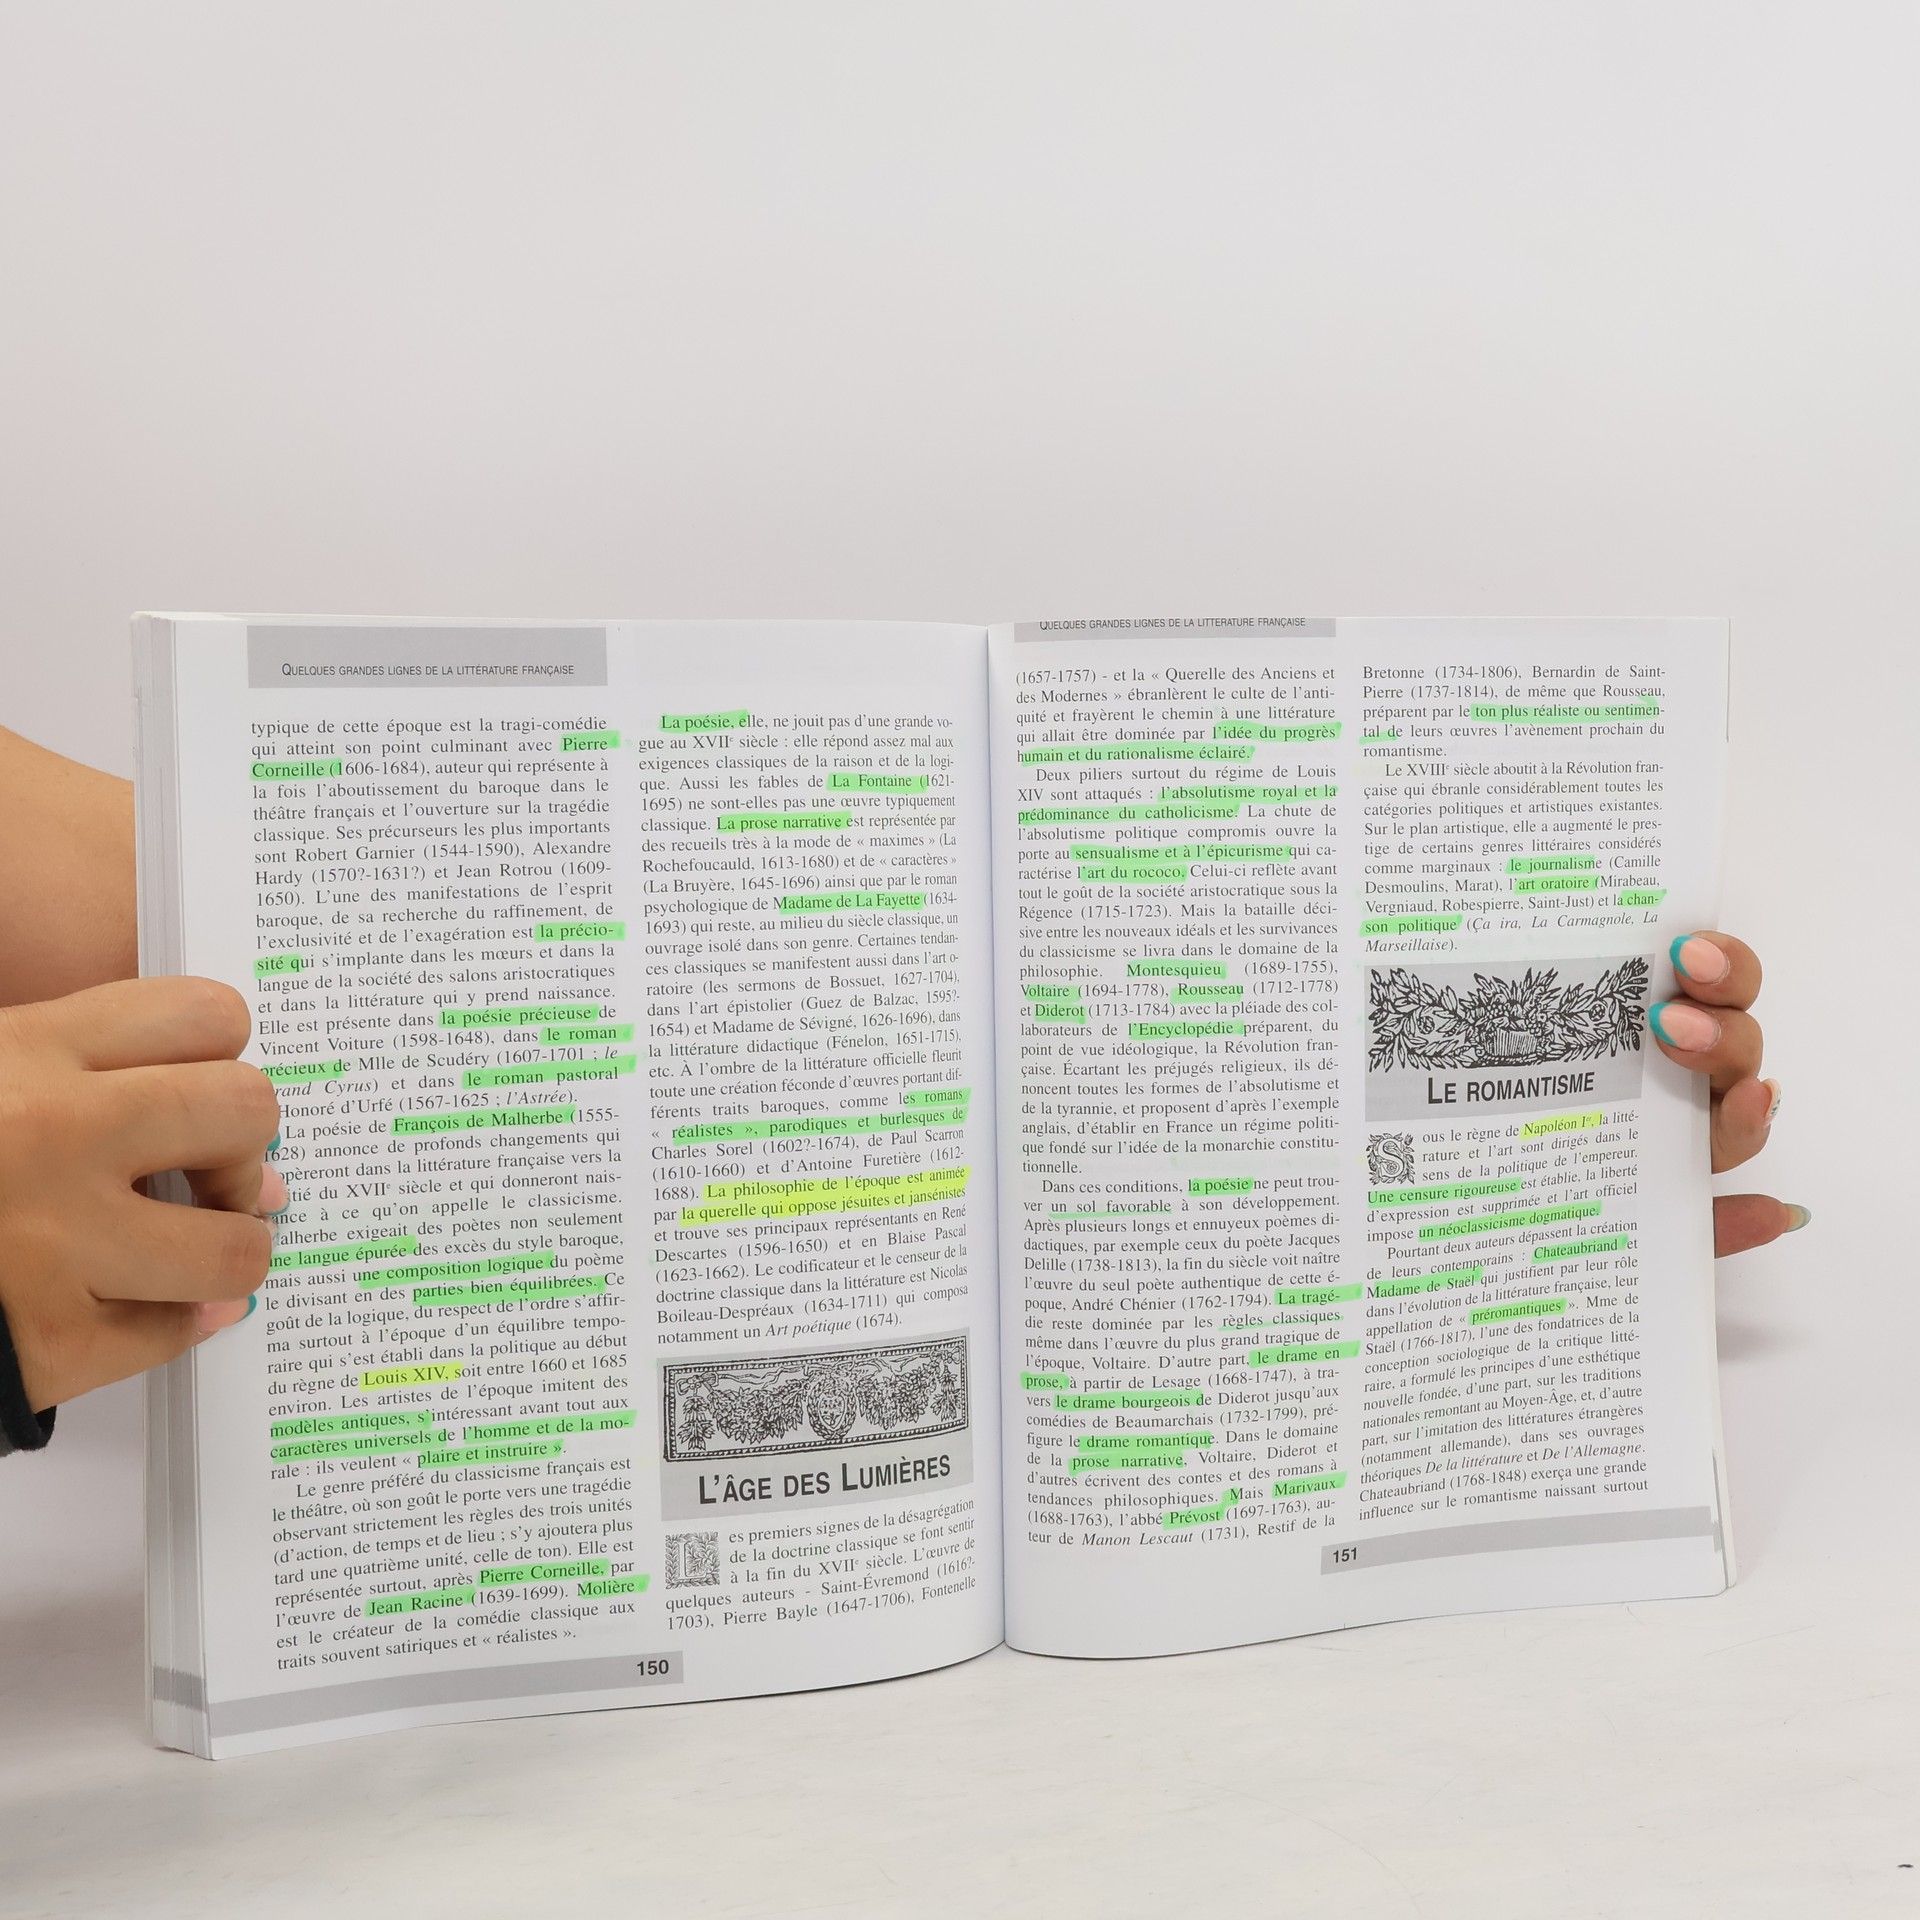 QUELQUES GRANDES LIGNES DE LA LITTÉRATURE FRANÇAISE
typique de cette époque est la tragi-comédie
qui atteint son point culminant avec Pierre
Corneille (1606-1684), auteur qui représente à
la fois l'aboutissement du baroque dans le
théâtre français et l'ouverture sur la tragédie
classique. Ses précurseurs les plus importants
sont Robert Garnier (1544-1590), Alexandre
Hardy (1570?-1631?) et Jean Rotrou (1609-
1650). L'une des manifestations de l'esprit
baroque, de sa recherche du raffinement, de
l'exclusivité et de l'exagération est la précio-
sité qui s'implante dans les mœurs et dans la
langue de la société des salons aristocratiques
et dans la littérature qui y prend naissance.
Elle est présente dans la poésie précieuse de
Vincent Voiture (1598-1648), dans le roman
précieux de Mlle de Scudéry (1607-1701 ; le
rand Cyrus) et dans le roman pastoral
Honoré d'Urfé (1567-1625 ; l'Astrée).
La poésie de François de Malherbe (1555-
1628) annonce de profonds changements qui
opèreront dans la littérature française vers la
itié du XVIIe siècle et qui donneront nais-
ance à ce qu'on appelle le classicisme.
alherbe exigeait des poètes non seulement
ne langue épurée des excès du style baroque,
mais aussi une composition logique du poème
le divisant en des parties bien équilibrées. Ce
goût de la logique, du respect de l'ordre s'affir-
ma surtout à l'époque d'un équilibre tempo-
raire qui s'est établi dans la politique au début
du règne de Louis XIV, soit entre 1660 et 1685
environ. Les artistes de l'époque imitent des
modèles antiques, s'intéressant avant tout aux
caractères universels de l'homme et de la mo-
rale : ils veulent « plaire et instruire ».
Le genre préféré du classicisme français est
le théâtre, où son goût le porte vers une tragédie
observant strictement les règles des trois unités
(d'action, de temps et de lieu ; s'y ajoutera plus
tard une quatrième unité, celle de ton). Elle est
représentée surtout, après Pierre Corneille, par
l'œuvre de Jean Racine (1639-1699). Molière
est le créateur de la comédie classique aux
traits souvent satiriques et « réalistes ».
La poésie, elle, ne jouit pas d'une grande vo-
gue au XVIIe siècle : elle répond assez mal aux
exigences classiques de la raison et de la logi-
que. Aussi les fables de La Fontaine (1621-
1695) ne sont-elles pas une œuvre typiquement
classique. La prose narrative est représentée par
des recueils très à la mode de « maximes » (La
Rochefoucauld, 1613-1680) et de « caractères »
(La Bruyère, 1645-1696) ainsi que par le roman
psychologique de Madame de La Fayette (1634-
1693) qui reste, au milieu du siècle classique, un
ouvrage isolé dans son genre. Certaines tendan-
ces classiques se manifestent aussi dans l'art o-
ratoire (les sermons de Bossuet, 1627-1704),
dans l'art épistolier (Guez de Balzac, 1595?-
1654) et Madame de Sévigné, 1626-1696), dans
la littérature didactique (Fénelon, 1651-1715),
etc. À l'ombre de la littérature officielle fleurit
toute une création féconde d'œuvres portant dif-
férents traits baroques, comme les romans
« réalistes », parodiques et burlesques de
Charles Sorel (1602?-1674), de Paul Scarron
(1610-1660) et d'Antoine Furetière (1612-
1688). La philosophie de l'époque est animée
par la querelle qui oppose jésuites et jansénistes
et trouve ses principaux représentants en René
Descartes (1596-1650) et en Blaise Pascal
(1623-1662). Le codificateur et le censeur de la
doctrine classique dans la littérature est Nicolas
Boileau-Despréaux (1634-1711) qui composa
notamment un Art poétique (1674).
L'ÂGE DES LUMIÈRES
Les premiers signes de la désagrégation
de la doctrine classique se font sentir
à la fin du XVIIe siècle. L'œuvre de
quelques auteurs - Saint-Évremond (1616?-
1703), Pierre Bayle (1647-1706), Fontenelle
150
QUELQUES GRANDES LIGNES DE LA LITTÉRATURE FRANÇAISE
(1657-1757) - et la « Querelle des Anciens et
des Modernes » ébranlèrent le culte de l'anti-
quité et frayèrent le chemin à une littérature
qui allait être dominée par l'idée du progrès
humain et du rationalisme éclairé.
Deux piliers surtout du régime de Louis
XIV sont attaqués : l'absolutisme royal et la
prédominance du catholicisme. La chute de
l'absolutisme politique compromis ouvre la
porte au sensualisme et à l'épicurisme qui ca-
ractérise l'art du rococo. Celui-ci reflète avant
tout le goût de la société aristocratique sous la
Régence (1715-1723). Mais la bataille déci-
sive entre les nouveaux idéals et les survivances
du classicisme se livra dans le domaine de la
philosophie. Montesquieu (1689-1755),
Voltaire (1694-1778), Rousseau (1712-1778)
et Diderot (1713-1784) avec la pléiade des col-
laborateurs de l'Encyclopédie préparent, du
point de vue idéologique, la Révolution fran-
çaise. Écartant les préjugés religieux, ils dé-
noncent toutes les formes de l'absolutisme et
de la tyrannie, et proposent d'après l'exemple
anglais, d'établir en France un régime politi-
que fondé sur l'idée de la monarchie constitu-
tionnelle.
Dans ces conditions, la poésie ne peut trou-
ver un sol favorable à son développement.
Après plusieurs longs et ennuyeux poèmes di-
dactiques, par exemple ceux du poète Jacques
Delille (1738-1813), la fin du siècle voit naître
l'œuvre du seul poète authentique de cette é-
poque, André Chénier (1762-1794). La tragé-
die reste dominée par les règles classiques
même dans l'œuvre du plus grand tragique de
l'époque, Voltaire. D'autre part, le drame en
prose, à partir de Lesage (1668-1747), à tra-
vers le drame bourgeois de Diderot jusqu'aux
comédies de Beaumarchais (1732-1799), pré-
figure le drame romantique. Dans le domaine
de la prose narrative, Voltaire, Diderot et
d'autres écrivent des contes et des romans à
tendances philosophiques. Mais Marivaux
(1688-1763), l'abbé Prévost (1697-1763), au-
teur de Manon Lescaut (1731), Restif de la
Bretonne (1734-1806), Bernardin de Saint-
Pierre (1737-1814), de même que Rousseau,
préparent par le ton plus réaliste ou sentimen-
tal de leurs œuvres l'avènement prochain du
romantisme.
Le XVIIIe siècle aboutit à la Révolution fran-
çaise qui ébranle considérablement toutes les
catégories politiques et artistiques existantes.
Sur le plan artistique, elle a augmenté le pres-
tige de certains genres littéraires considérés
comme marginaux : le journalisme (Camille
Desmoulins, Marat), l'art oratoire (Mirabeau,
Vergniaud, Robespierre, Saint-Just) et la chan-
son politique (Ça ira, La Carmagnole, La
Marseillaise).
LE ROMANTISME
Sous le règne de Napoléon Ier, la litté-
rature et l'art sont dirigés dans le
sens de la politique de l'empereur.
Une censure rigoureuse est établie, la liberté
d'expression est supprimée et l'art officiel
impose un néoclassicisme dogmatique.
Pourtant deux auteurs dépassent la création
de leurs contemporains : Chateaubriand et
Madame de Staël qui justifient par leur rôle
dans l'évolution de la littérature française, leur
appellation de « préromantiques ». Mme de
Staël (1766-1817), l'une des fondatrices de la
conception sociologique de la critique litté-
raire, a formulé les principes d'une esthétique
nouvelle fondée, d'une part, sur les traditions
nationales remontant au Moyen-Âge, et, d'autre
part, sur l'imitation des littératures étrangères
(notamment allemande), dans ses ouvrages
théoriques De la littérature et De l'Allemagne.
Chateaubriand (1768-1848) exerça une grande
influence sur le romantisme naissant surtout
151